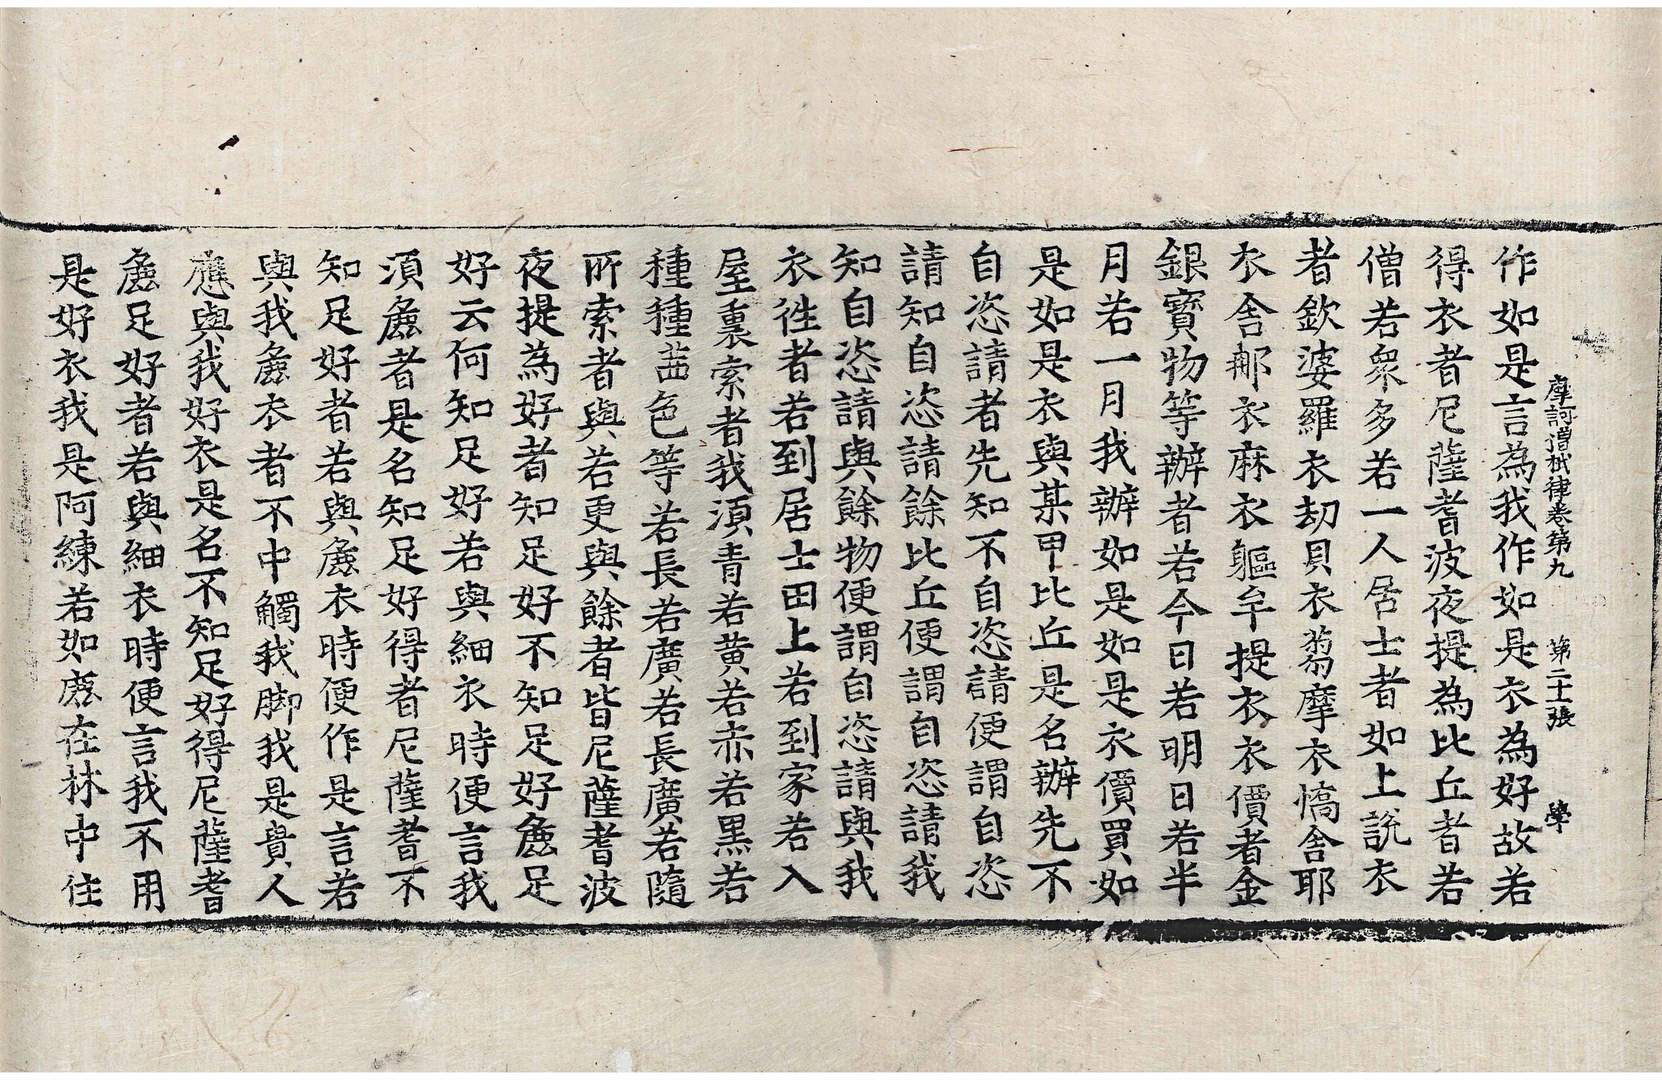 摩訶僧祇律卷第九 第二十一張 學
作如是言為我作如是衣為好故若
得衣者尼薩耆波夜提為比丘者若
僧若衆多若一人居士者如上說衣
者欽婆羅衣劫貝衣芻摩衣憍舍耶
衣舍那衣麻衣軀牟提衣衣價者金
銀寶物等辦者若今日若明日若半
月若一月我辦如是如是衣價買如
是如是衣與某甲比丘是名辦先不
自恣請者先知不自恣請便謂自恣
請知自恣請餘比丘便謂自恣請我
知自恣請與餘物便謂自恣請與我
衣徃者若到居士田上若到家若入
屋裏索者我湏青若黄若赤若黑若
種種茜色等若長若廣若長廣若隨
所索者與若更與餘者皆尼薩耆波
夜提為好者知足好不知足好麁足
好云何知足好若與細衣時便言我
湏麁者是名知足好得者尼薩耆不
知足好者若與麁衣時便作是言若
與我麁衣者不中觸我脚我是貴人
應與我好衣是名不知足好得尼薩耆
麁足好者若與細衣時便言我不用
是好衣我是阿練若如麁在林中住